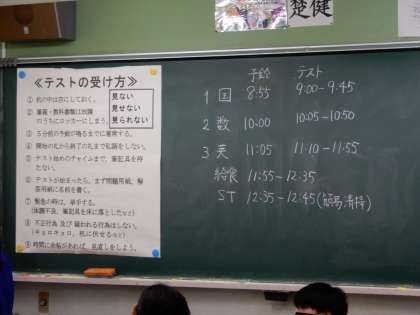 楚健
≪テストの受け方≫
見ない
見せない
見られない
① 机の中は空にしておく。
② 筆箱・教科書類は放課
のうちにロッカーにしまう。
③ 5分前の予鈴が鳴るまでに着席する。
④ 開始の礼から終了の礼まで私語をしない。
⑤ テスト始めのチャイムまで、筆記具を持
たない。
⑥ テストが始まったら、まず問題用紙、解
答用紙に名前を書く。
⑦ 緊急の時は、挙手する。
(体調不良、筆記具を床に落としたなど)
⑧ 不正行為及び疑われる行為はしない。
(キョロキョロ、机に伏せるなど)
⑨ 時間に余裕があれば、見直しをしよう。
予鈴 テスト
1 国 8:55 9:00-9:45
2 数 10:00 10:05-10:50
3 英 11:05 11:10-11:55
給食 11:55-12:35
ST 12:35-12:45(簡易清掃)